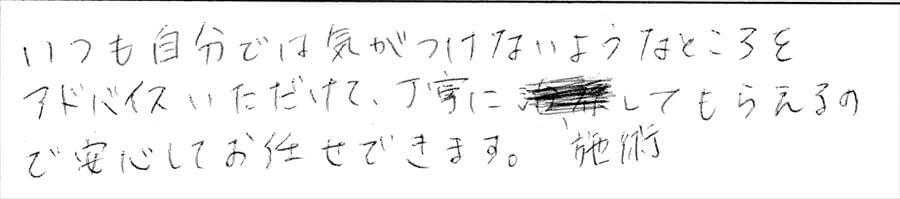 いつも自分では気がつけないようなところを
アドバイスいただけて、丁寧に施術してもらえるの
で安心してお任せできます。